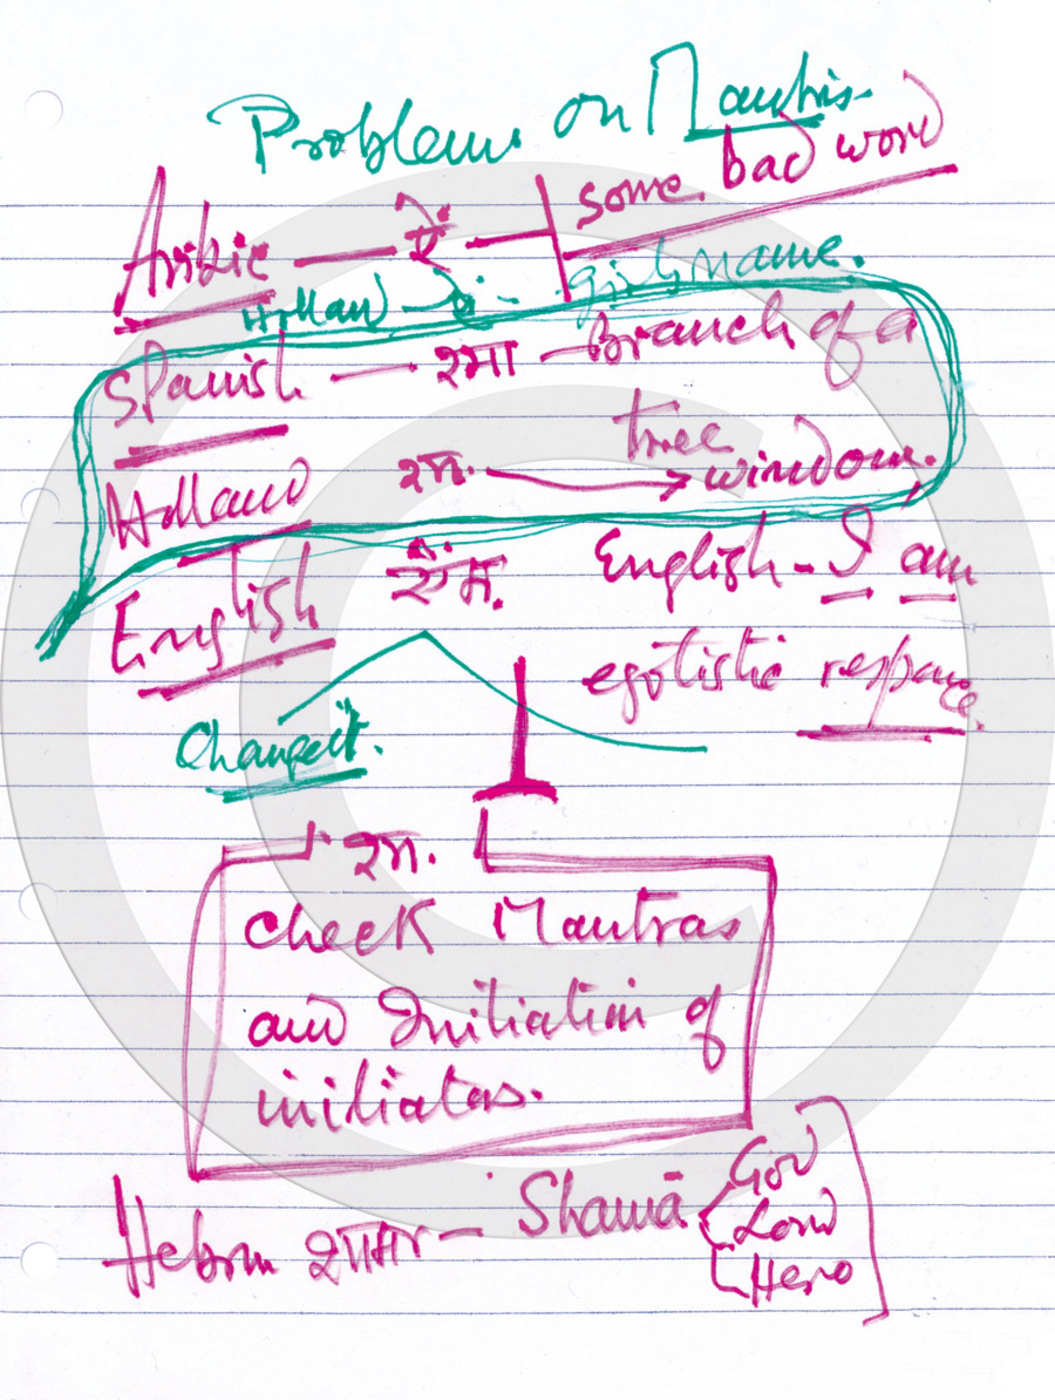 Problems on Mantras
Arabic — — some bad word
Holland — - girls name.
Spanish — रमा — Branch of a
tree
Holland राम. → window.
English English - I am
egotistic response.
Change it.
राम.
Check Mantras
and Initiation of
initiates.
Hebrew - Shamā God
Lord
Hero